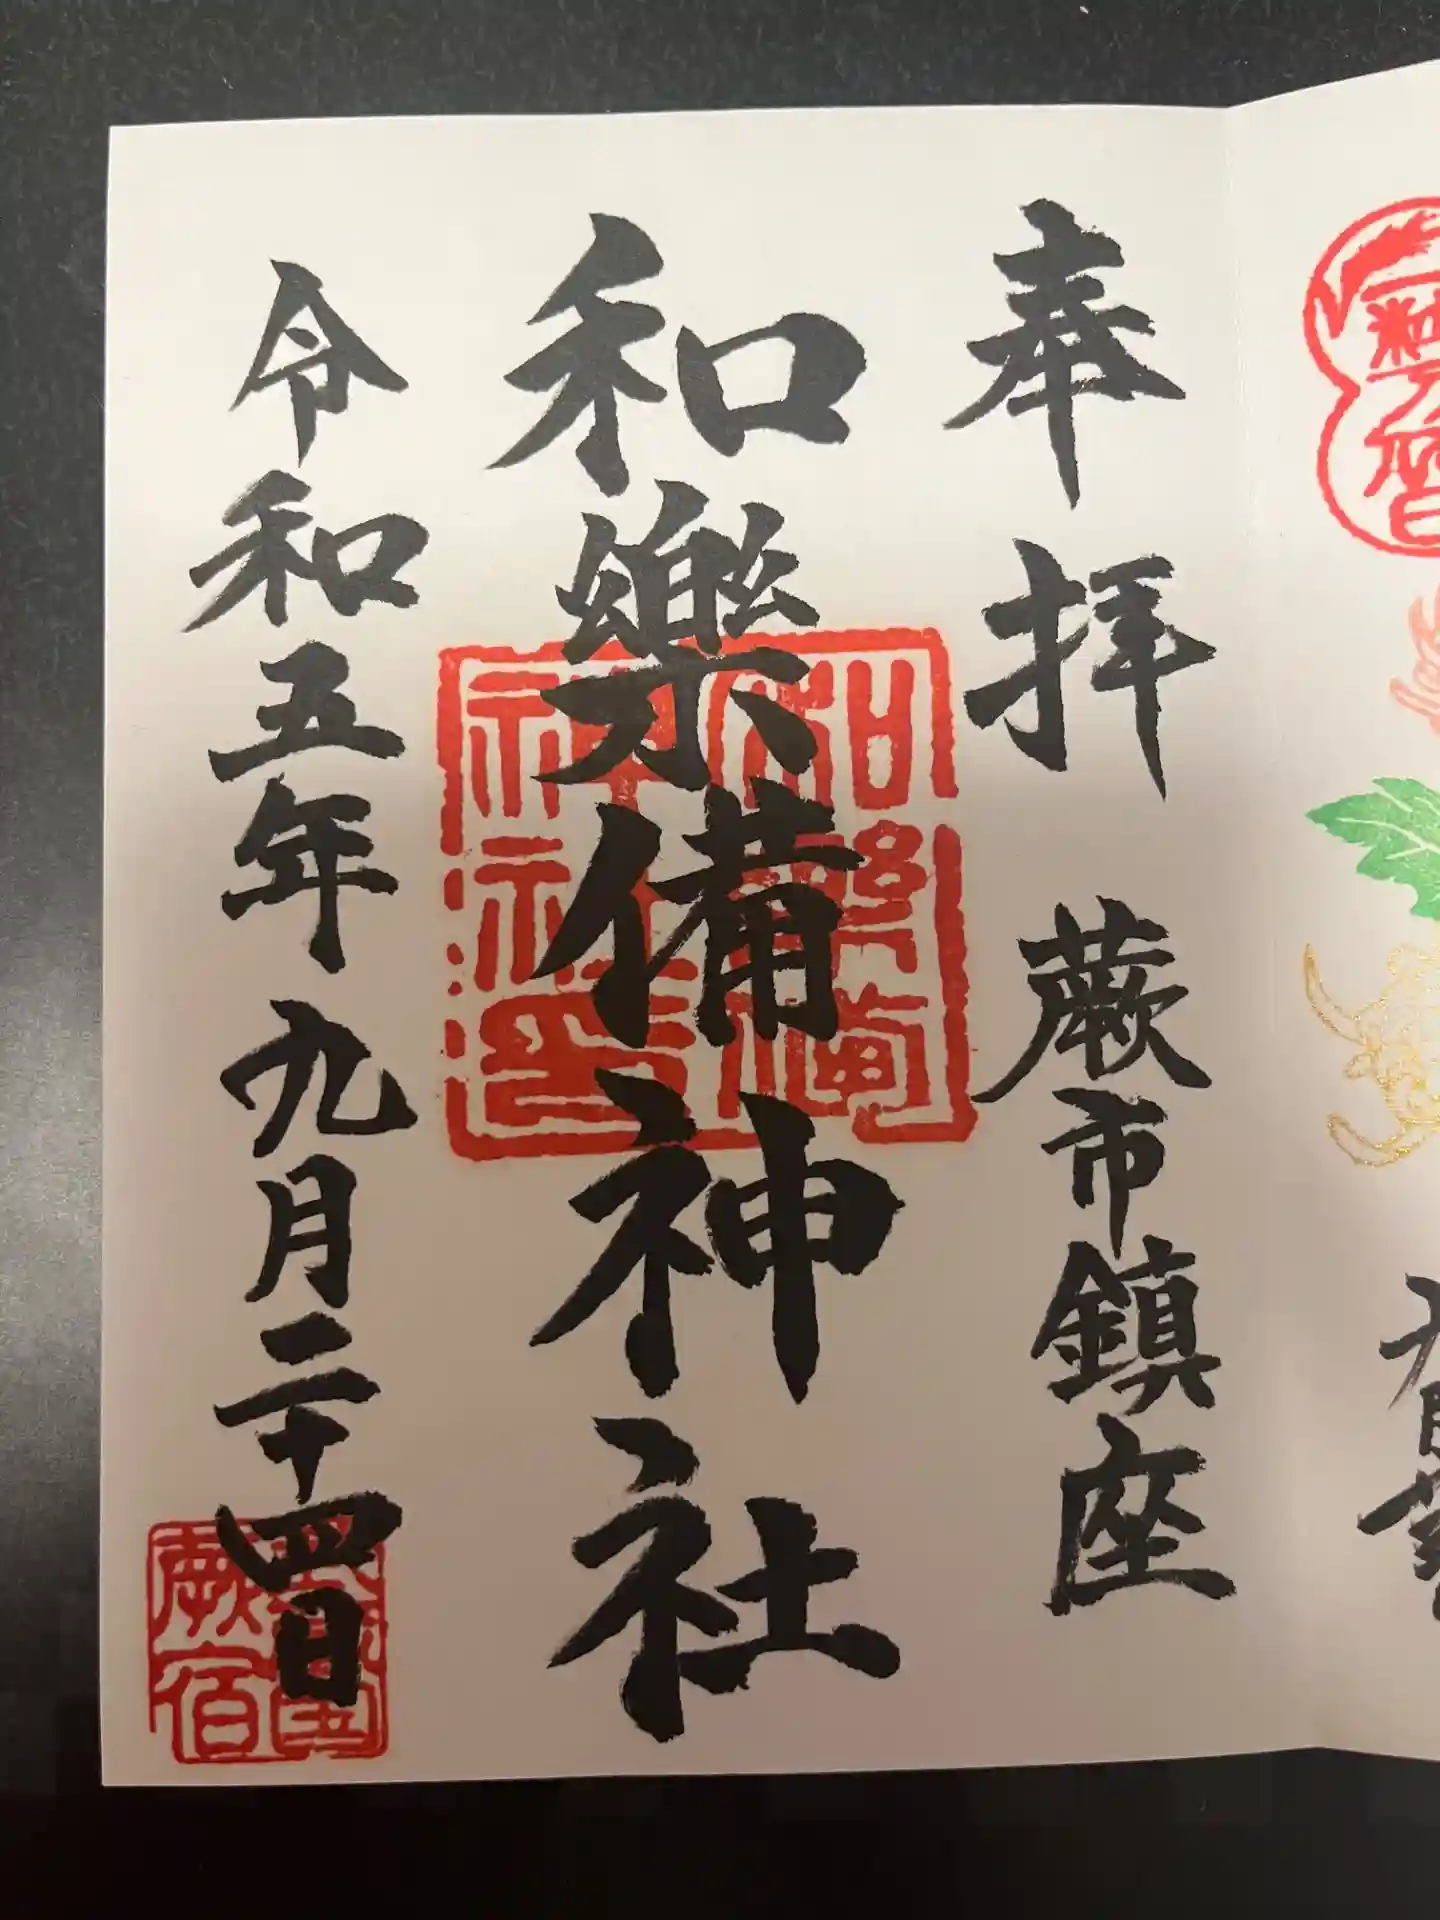 奉拝 蕨市鎮座
和樂備神社
令和五年九月二十四日
和樂備
神社印
蕨宿